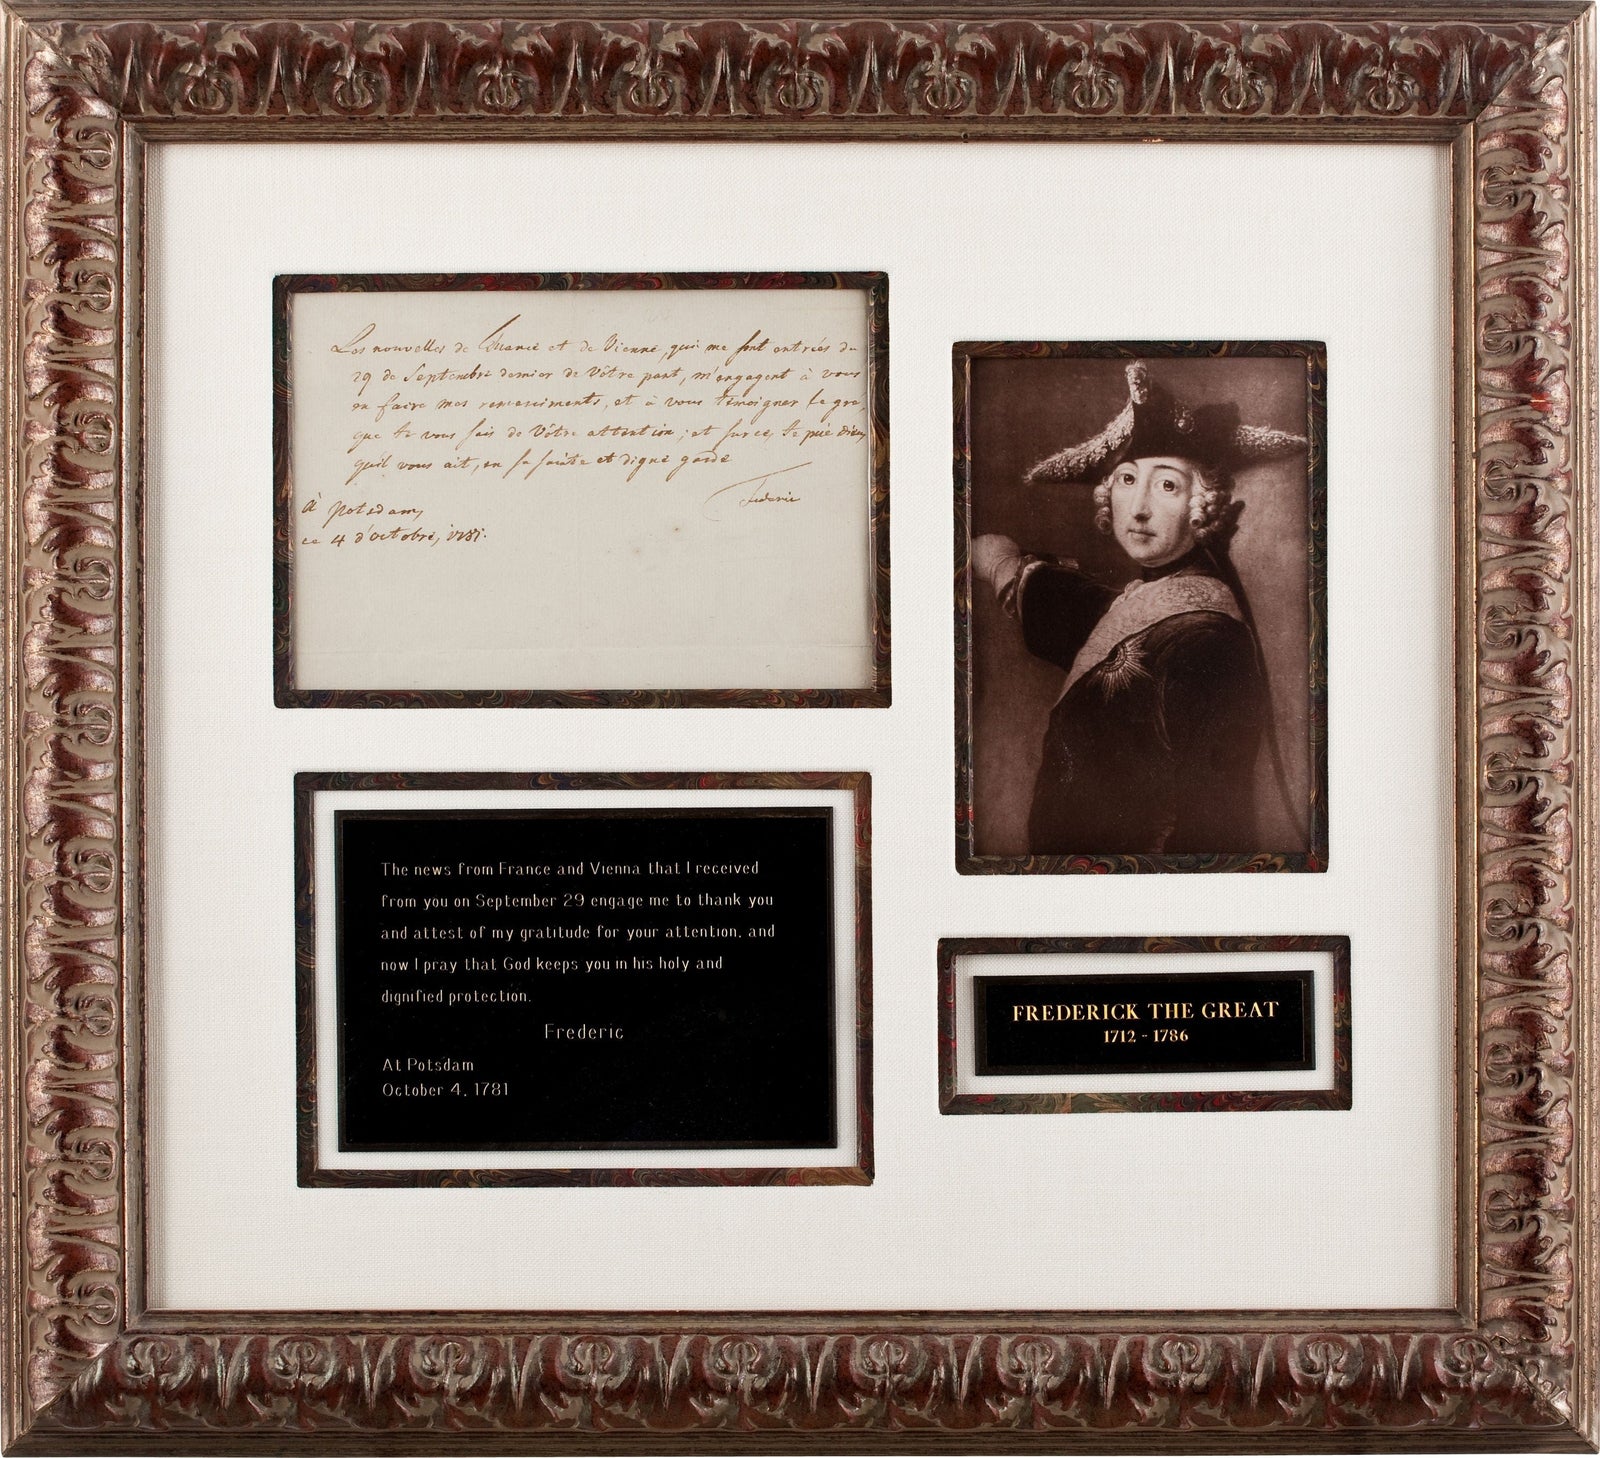 Les nouvelles de France et de Vienne, qui me sont entrées du
29 de Septembre dernier de Vôtre part, m'engagent à vous
en faire mes remerciments, et à vous témoigner le gré,
que Je vous sais de Vôtre attention; et surce, Je prie Dieu
qu'il vous ait, en sa sainte et digne garde
Federic
à Potsdam,
ce 4 d'octobre, 1781.
The news from France and Vienna that I received
from you on September 29 engage me to thank you
and attest of my gratitude for your attention, and
now I pray that God keeps you in his holy and
dignified protection.
Frederic
At Potsdam
October 4, 1781
FREDERICK THE GREAT
1712 - 1786